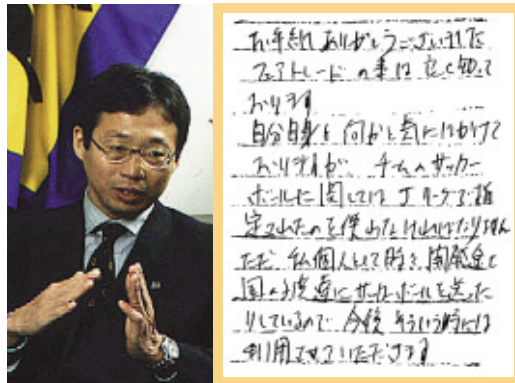 お手紙ありがとうございました
フェアトレードの事は良く知って
おります
自分自身も何かと気にはかけて
おりますが チームのサッカー
ボールに関しては Jリーグで指
定されたのを使わなければなりません
ただ 私個人として時々 開発途上
国の子供達にサッカーボールを送った
りしているので 今後 そういう時には
利用させていただきます